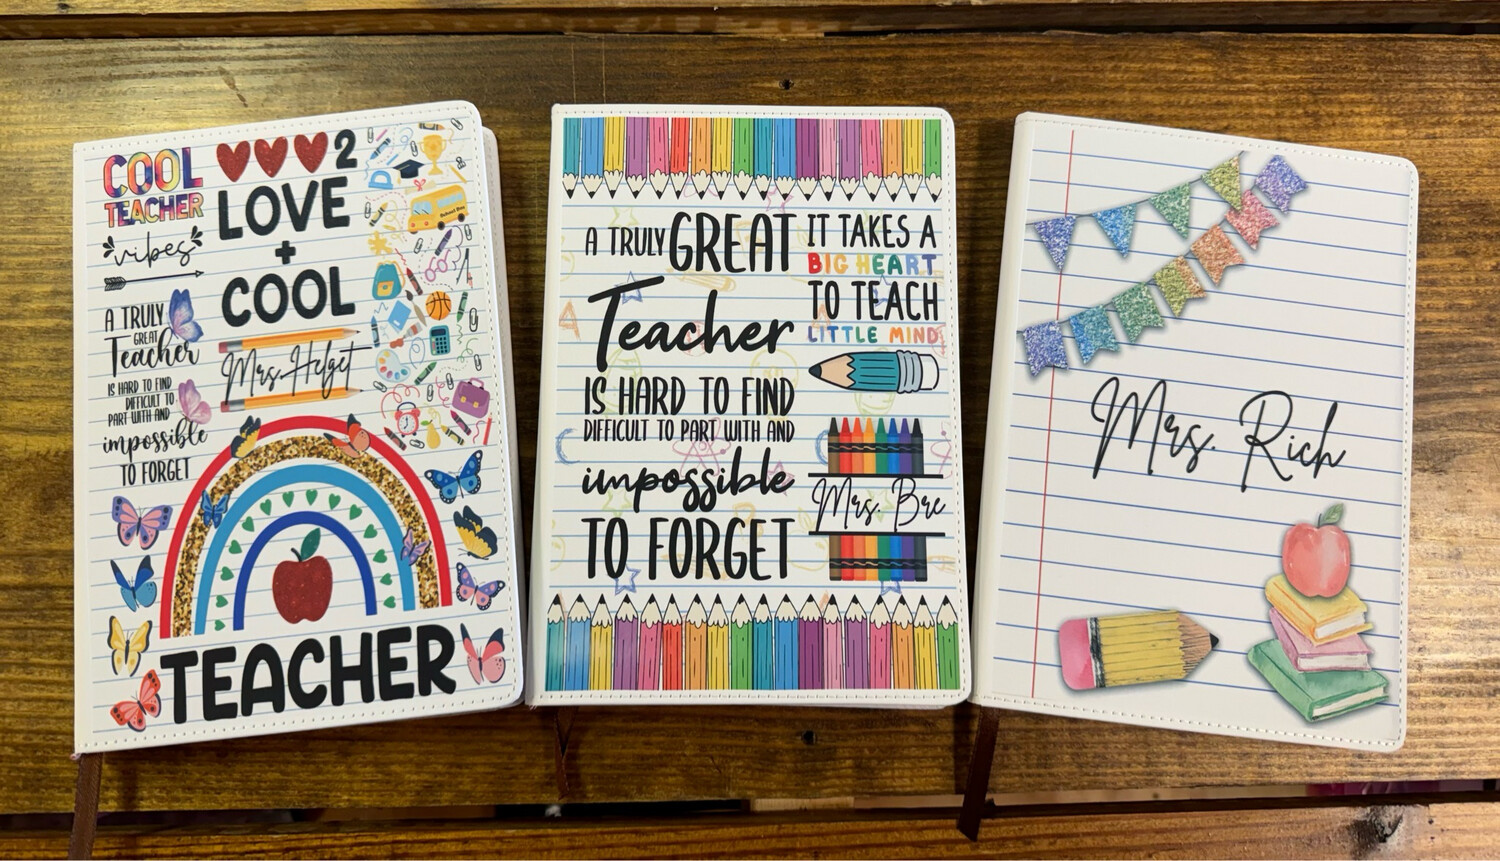 COOL
TEACHER
vibes
A TRULY
GREAT
Teacher
IS HARD TO FIND
DIFFICULT TO
PART WITH AND
impossible
TO FORGET
2
LOVE
+
COOL
Mrs. Helget
School Bus
TEACHER
A TRULY GREAT
Teacher
IS HARD TO FIND
DIFFICULT TO PART WITH AND
impossible
TO FORGET
IT TAKES A
BIG HEART
TO TEACH
LITTLE MIND
Mrs. Bre
Mrs. Rich